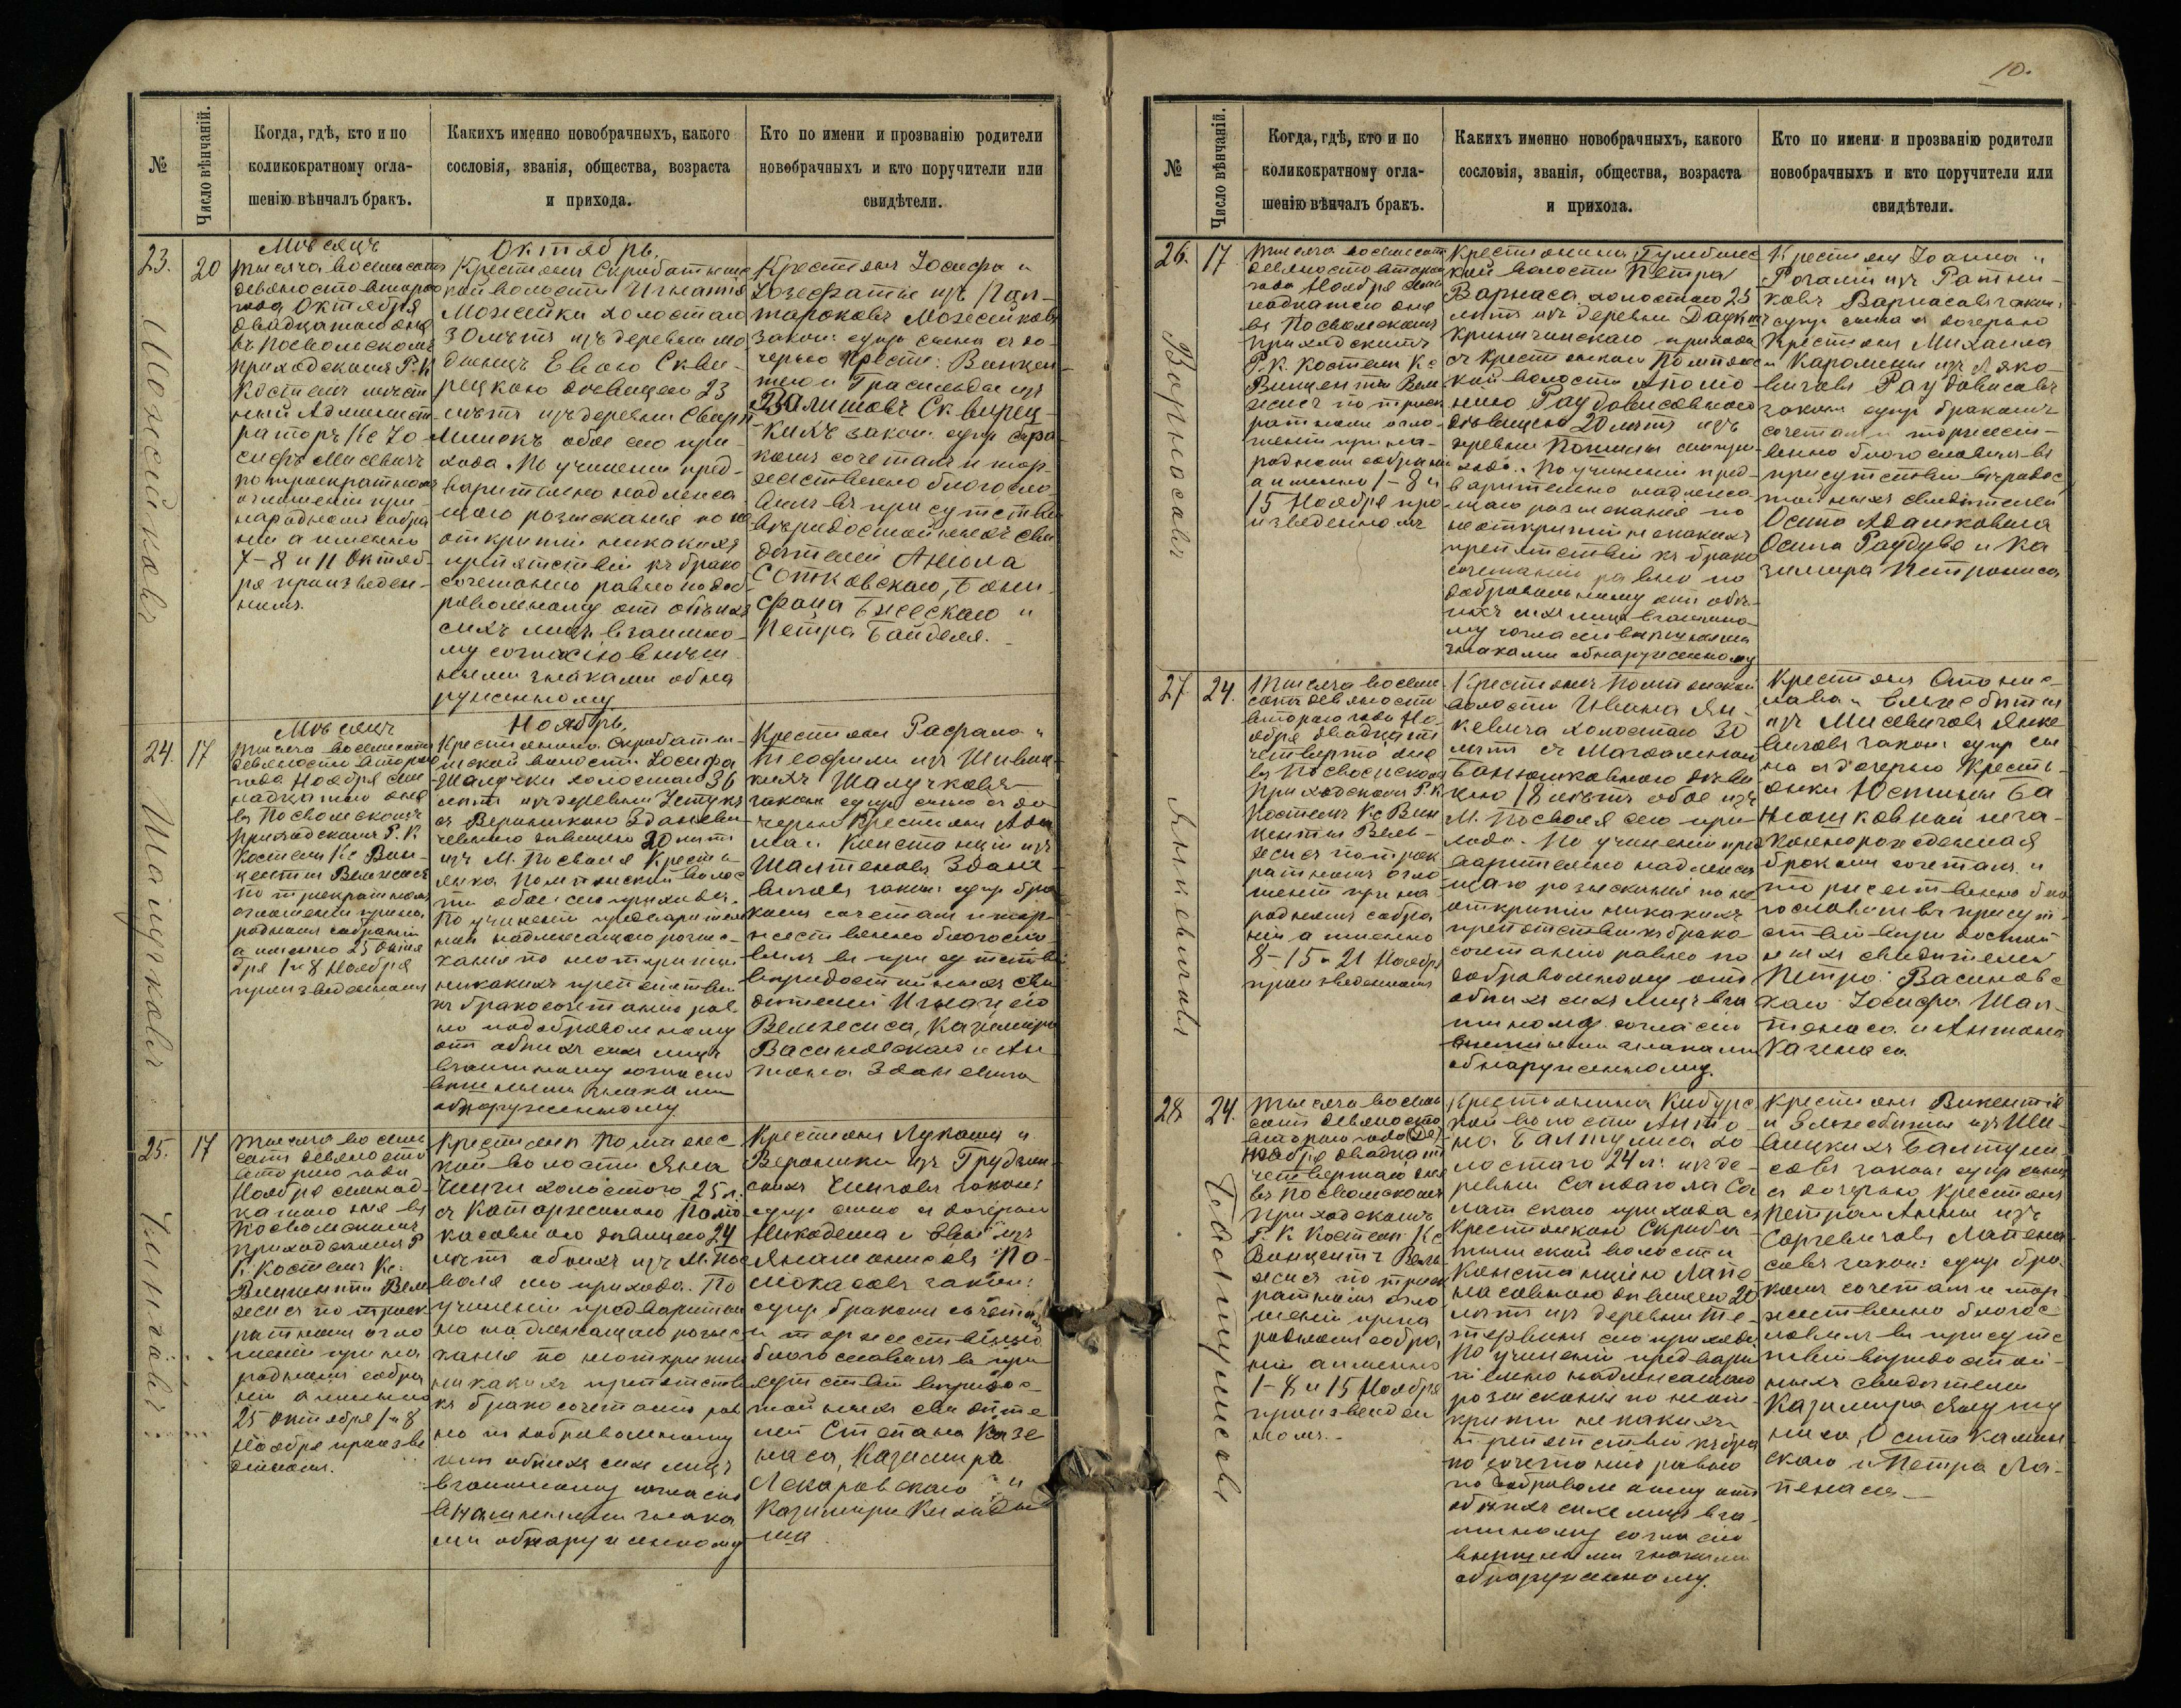 10.
№
Число вѣнчаній.
Когда, гдѣ, кто и по
коликократному огла-
шенію вѣнчалъ бракъ.
Какихъ именно новобрачныхъ, какого
сословія, званія, общества, возраста
и прихода.
Кто по имени и прозванію родители
новобрачныхъ и кто поручители или
свидѣтели.
Мѣсяцъ
Октябрь.
23.
20
Можейковъ
Тысяча восемьсотъ
девяносто второго
года Октября
двадцатаго дня
въ Посвольскомъ
приходскомъ Р. К.
Костелѣ мѣст-
ный Админист-
раторъ Кс Іо-
сифъ Мисевичъ
по троекратномъ
оглашеніи при
народномъ собра
ніи а именно
7-8 и 11 Октяб-
ря произведен-
номъ.
Крестьянина Скробатышс
кой волости Игнатія
Можейки холостаго
30 лѣтъ изъ деревни
съ Евою Скви-
рецкою дѣвицею 23
лѣтъ изъ деревни
обое сего при-
хода. По учиненіи пред-
варительно надлежа
щаго розысканія по не
открытіи никакихъ
препятствій къ брако
сочетанію равно по доб
ровольному отъ обѣихъ
сихъ лицъ взаимно-
му согласію внѣш-
ними знаками обна
руженному
Крестьянъ Іосифа и
Іозефаты изъ
Можейковъ
закон: супр сына съ до-
черью Крестн: Винцен
тія и
Сквирец-
кихъ закон: супр бра-
комъ сочеталъ и тор-
жественно благосло-
вилъ въ присутствіи
вѣродостойныхъ сви
дѣтелей
Сотковскаго, Бони-
фаца и
Петра Байделя.
Мѣсяцъ
Ноябрь.
24.
17
Шалучковъ
Тысяча восемьсотъ
девяносто второго
года Ноября сем
надцатаго дня
въ Посвольскомъ
приходскомъ Р. К.
Костелѣ Кс Вин-
центій Вельжесисъ
по троекратномъ
оглашеніи при на
родномъ собраніи
а именно 25 Октя
бря 1 и 8 Ноября
произведенномъ
Крестьянина Скробатыш-
ской волости Іосифа
Шалучки холостаго 36
лѣтъ изъ деревни
съ Вероникою Зданеви
чевною дѣвицею 20 лѣтъ
изъ М. Посволя Кресть
янка Помпянской волос
ти обое сего прихода.
По учиненіи предваритель
но надлежащаго розыс-
канія по неоткрытіи
никакихъ препятствій
къ бракосочетанію рав
но по добровольному
отъ обѣихъ сихъ лицъ
взаимному согласію
внѣшними знаками
обнаруженному
Крестьянъ Рафала и
Теофили изъ
Шалучковъ
закон супр сына съ до
черью Крестьянъ
и Констанціи изъ
Здане-
вичовъ закон: супр бра
комъ сочеталъ и тор-
жественно благосло-
вилъ въ присутствіи
вѣродостойныхъ сви
дѣтелей Игнація
Вельжесиса, Казиміра
Васиновскаго и Ан
тона Зданевича
25.
17
Чинговъ
Тысяча восемь
сотъ девяносто
второго года
Ноября семнад-
цатаго дня въ
Посвольскомъ
приходскомъ Р
К. Костелѣ Кс.
Винцентій Вель
жесисъ по троек
ратномъ огло
шеніи при на
родномъ собра
ніи а именно
25 Октября 1 и 8
Ноября произве
денномъ.
Крестьянина Помпянс-
кой волости Яна
Чинги холостаго 25 л.
съ Катаржиною Поло
касовною дѣвицею 24
лѣтъ обоихъ изъ М. Пос
воля сего прихода. По
учиненіи предваритель
но надлежащаго розыс
канія по неоткрытіи
никакихъ препятствій
къ бракосочетанію рав
но по добровольному
отъ обѣихъ сихъ лицъ
взаимному согласію
внѣшними знака
ми обнаруженному
Крестьянъ Лукаша и
Вероники изъ
Чинговъ закон:
супр сына съ дочерью
Никодема и Евы изъ
По-
локасовъ закон:
супр бракомъ сочеталъ
и торжественно
благословилъ въ при
сутствіи вѣродос-
тойныхъ свидѣте
лей Степана Казе
наса, Казиміра
Лекаровскаго и
Казиміра
№
Число вѣнчаній.
Когда, гдѣ, кто и по
коликократному огла-
шенію вѣнчалъ бракъ.
Какихъ именно новобрачныхъ, какого
сословія, званія, общества, возраста
и прихода.
Кто по имени и прозванію родители
новобрачныхъ и кто поручители или
свидѣтели.
26.
17.
Варнасовъ
Тысяча восемьсотъ
девяносто второго
года Ноября сем
надцатаго дня
въ Посвольскомъ
приходскомъ
Р. К. Костелѣ Кс
Винцентій Вель
жесисъ по троек
ратномъ огла-
шеніи при на-
родномъ собраніи
а именно 1-8 и
15 Ноября про-
изведенномъ
Крестьянина
кой волости Петра
Варнаса холостаго 25
лѣтъ изъ деревни
Криничинскаго прихода
съ Крестьянкою Помпянс
кой волости Аполо
нію Раудовисовною
дѣвицею 20 лѣтъ изъ
деревни сего при
хода. По учиненіи пред-
варительно надлежа-
щаго розысканія по
неоткрытіи никакихъ
препятствій къ брако
сочетанію равно по
добровольному отъ обѣ-
ихъ сихъ лицъ взаимно-
му согласію внѣшними
знаками обнаруженному
Крестьянъ Іоанна и
Розаліи изъ
Варнасовъ закон:
супр сына съ дочерью
Крестьянъ Михаила
и Каролины изъ
Раудовисовъ
закон супр бракомъ
сочеталъ и торжест-
венно благословилъ въ
присутствіи вѣродос
тойныхъ свидѣтелей
Осипа Адашковича
Осипа Раудуве и Ка
зиміра Петрониса
27
24.
Янкевичовъ
Тысяча восемь
сотъ девяносто
второго года Но-
ября двадцать
четвертаго дня
въ Посвольскомъ
приходскомъ Р. К
Костелѣ Кс Вин
центій Вель-
жесисъ по троек
ратномъ огло
шеніи при на
родномъ собра
ніи а именно
8-15 и 21 Ноября
произведенномъ
Крестьянина Помпянской
волости Ивана Ян-
кевича холостаго 30
лѣтъ съ Магдаленою
Банюшковною дѣви
цею 18 лѣтъ обое изъ
М. Посволя сего при-
хода. По учиненіи пред
варительно надлежа
щаго розысканія по не
открытіи никакихъ
препятствій къ брако
сочетанію равно по
добровольному отъ
обѣихъ сихъ лицъ вза
имному согласію
внѣшними знаками
обнаруженному.
Крестьянъ Станис-
лава и Елисабеты
изъ Мисевичовъ Янке
вичовъ закон: супр сы
на съ дочерью Кресть-
янки Юстины Ба
нюшковной неза-
коннорожденная
бракомъ сочеталъ и
торжественно бла
гословилъ въ присут-
ствіи вѣродостой
ныхъ свидѣтелей
Петра Васиновс
каго Іосифа
и Антона
Казенаса
28
24.
Балтулисовъ
Тысяча восемь
сотъ девяносто
второго года
Ноября двадцать
четвертаго дня
въ Посвольскомъ
приходскомъ
Р. К Костелѣ Кс
Винцентъ Вель
жесисъ по троек
ратномъ огло
шеніи при на
родномъ собра
ніи а именно
1-8 и 15 Ноября
произведен
номъ.
Крестьянина Кибурс
кой волости Анто
на Балтулиса хо
лостаго 24 л: изъ де-
ревни Са
латскаго прихода съ
Крестьянкою Скроба
тышской волости
Констанціею Лапе
насовною дѣвицею 20
лѣтъ изъ деревни
сего прихода
По учиненіи предвари
тельно надлежащаго
розысканія по неот-
крытіи никакихъ
препятствій къ бра
косочетанію равно
по добровольному отъ
обѣихъ сихъ лицъ вза-
имному согласію
внѣшними знаками
обнаруженному.
Крестьянъ Викентія
и Елисабеты изъ
Балтули-
совъ закон: супр сына
съ дочерью Крестьянъ
Петра и Анны изъ
Лапена
совъ закон: супр бра-
комъ сочеталъ и тор
жественно благос-
ловилъ въ присутс
твіи вѣродостой-
ныхъ свидѣтелей
Казиміра
Осипа Камин
скаго и Петра Ла-
пенаса